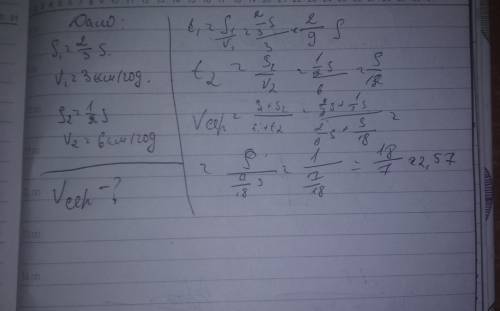 Дано:
S₁ = 2/3 S.
V₁ = 3 км/год.
S₂ = 1/3 S
V₂ = 6 км/год
Vсер - ?
t₁ = S₁/V₁ = (2/3 S)/3 = 2/9 S
t₂ = S₂/V₂ = (1/3 S)/6 = S/18
Vсер = (S₁+S₂)/(t₁+t₂) = (2/3 S + 1/3 S)/(2/9 S + S/18) =
= S/(7/18 S) = 1/(7/18) = 18/7 ≈ 2,57